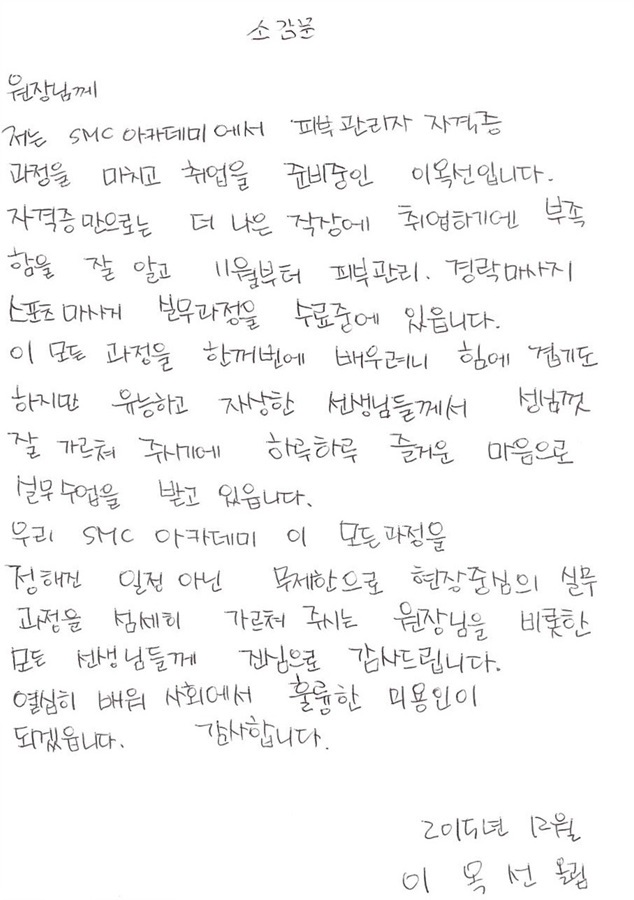 소감문
원장님께
저는 SMC 아카데미에서 피부관리자 자격증
과정을 마치고 취업을 준비중인 이옥선입니다.
자격증만으로는 더 나은 직장에 취업하기엔 부족
함을 잘 알고 11월부터 피부관리. 경락마사지
스포츠마사지 실무과정을 수료중에 있읍니다.
이 모든 과정을 한꺼번에 배우려니 힘에 겹기도
하지만 유능하고 자상한 선생님들께서 성심껏
잘 가르쳐 주시기에 하루하루 즐거운 마음으로
실무수업을 받고 있읍니다.
우리 SMC 아카데미 이 모든과정을
정해진 일정 아닌 무제한으로 현장중심의 실무
과정을 섬세히 가르쳐 주시는 원장님을 비롯한
모든 선생님들께 진심으로 감사드립니다.
열심히 배워 사회에서 훌륭한 미용인이
되겠읍니다. 감사합니다.
2015년 12월
이 옥 선 올림